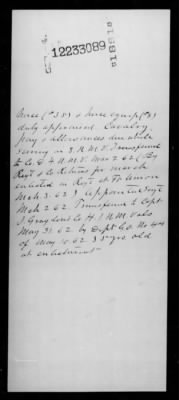 12233089
Horse ($35) & horse equip ($8)
duly appraised. Cavalry.
Pay & allowances due while
serving in 3. N.M.V. Transferred
to Co. D 4 N.M.V. Mar 2 62 (By
Regt & Co Returns for march
enlisted in Regt at Ft Union
Mch 3. 62) Appointed Sergt
Mch 2 62 Transferred to Capt
J. Graydons Co H. 1 N.M Vols
May 31 62. by Dept G.O. No 44
of May 10 62 35 yrs old
at enlistment